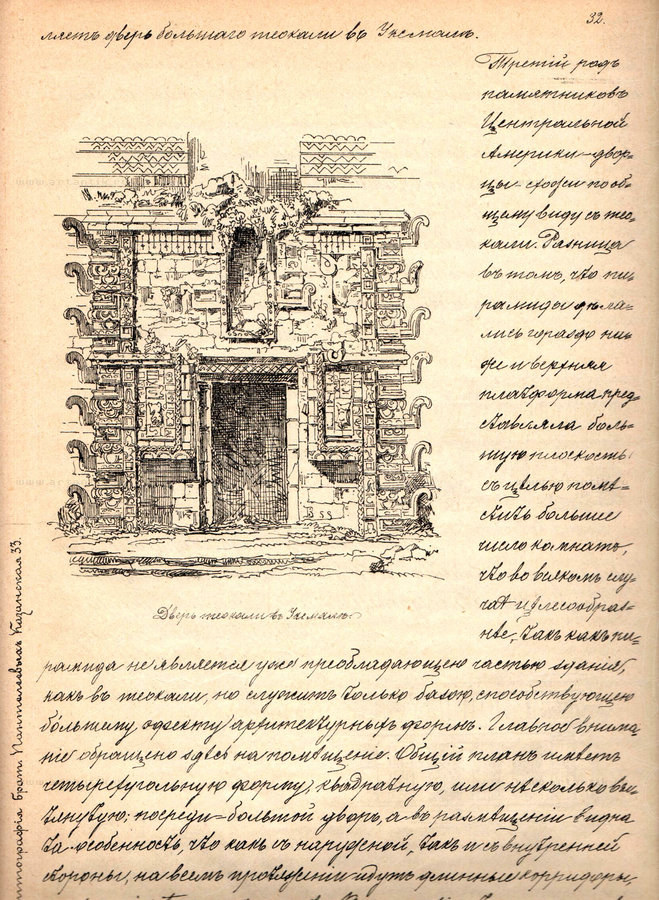 32.
ляетъ дверь большаго теокали въ Уксмалѣ.
Третій родъ
памятниковъ
Центральной
Америки–двор-
цы–схожи по об-
щему виду съ тео-
кали. Разница
въ томъ, что пи-
рамиды дѣла-
лись гораздо ни-
же и верхняя
платформа пред-
ставляла боль-
шую плоскость
съ цѣлью помѣ-
стить большее
число комнатъ,
что во всякомъ слу-
чаѣ цѣлесообраз-
нѣе, такъ какъ пи-
Дверь теокали въ Уксмалѣ.
рамида не является уже преобладающею частью зданія,
какъ въ теокали, но служитъ только базою, способствующею
бо́льшему эффекту архитектурныхъ формъ. Главное внима-
ніе обращено здѣсь на помѣщеніе. Общій планъ имѣетъ
четыреугольную форму, квадратную, или нѣсколько вы-
тянутую; посреди–большой дворъ, а въ размѣщеніи видна
та особенность, что какъ съ наружной, такъ и съ внутренней
стороны, на всемъ протяженіи идутъ длинные корридоры,
Литографія Брат. Пантелеевыхъ Казанская 33.